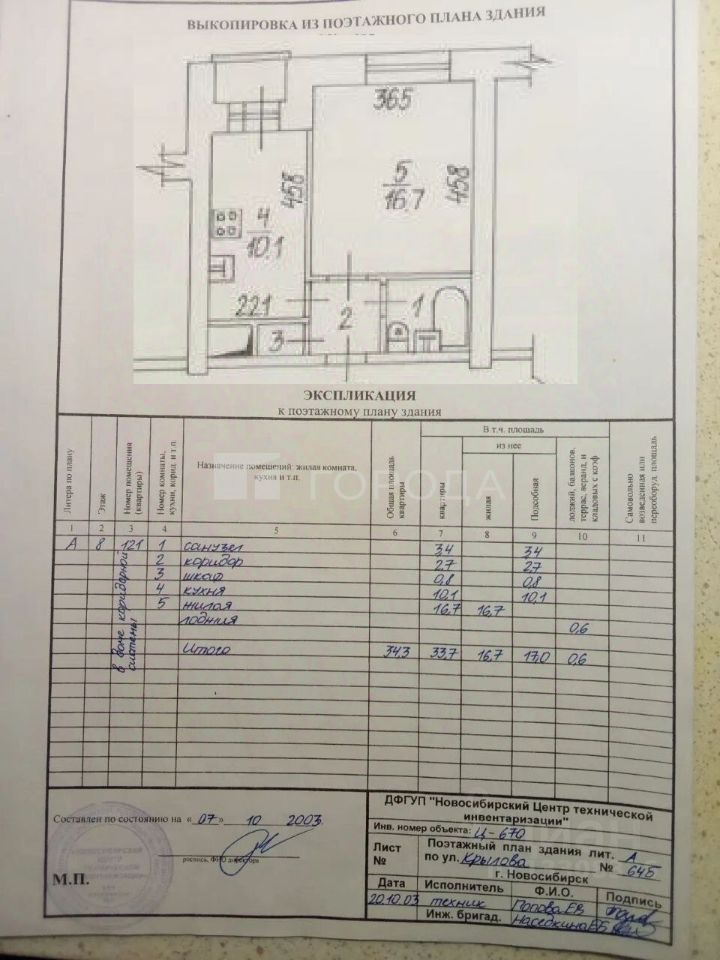 ВЫКОПИРОВКА ИЗ ПОЭТАЖНОГО ПЛАНА ЗДАНИЯ
365
458
5
16.7
458
4
10.1
221
3
2
1
ЭКСПЛИКАЦИЯ
к поэтажному плану здания
Литера по плану
Этаж
Номер помещения (квартиры)
Номер комнаты, кухни, корид. и т.п.
Назначение помещений: жилая комната, кухня и т.п.
Общая площадь квартиры
В т.ч. площадь
квартиры
из нее
жилая
Подсобная
лоджий, балконов, террас, веранд, и кладовых с коэф
Самовольно возведенная или переоборуд. площадь
1 2 3 4 5 6 7 8 9 10 11
А 8 121 1 санузел 3,4 3,4
2 коридор 2,7 2,7
3 шкаф 0,8 0,8
4 кухня 10,1 10,1
5 жилая 16,7 16,7
лоджия 0,6
Итого 34,3 33,7 16,7 17,0 0,6
в доме коридорной системы
ГОРОДА
Составлен по состоянию на «07» 10 2003
роспись, ФИО директора
М.П.
ДФГУП "Новосибирский Центр технической инвентаризации"
Инв. номер объекта: Ц-670
Лист №
Поэтажный план здания лит. А
по ул. Крылова № 64Б
г. Новосибирск
Дата Исполнитель Ф.И.О. Подпись
20.10.03 техник Попова ЕВ
Инж. бригад. Наседкина ЕБ